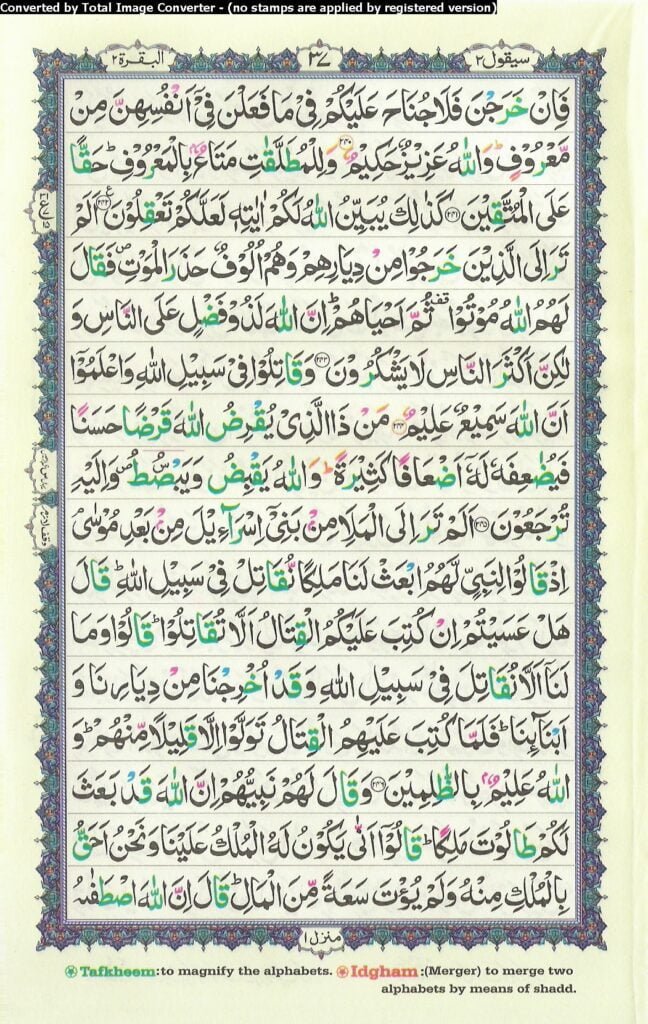 Converted by Total Image Converter - (no stamps are applied by registered version)
سيقول ٢
٣٧
البقرة ٢
فَاِنْ خَرَجْنَ فَلَا جُنَاحَ عَلَيْكُمْ فِيْ مَا فَعَلْنَ فِيْٓ اَنْفُسِهِنَّ مِنْ
مَّعْرُوْفٍ ؕ وَاللّٰهُ عَزِيْزٌ حَكِيْمٌ ﴿۲۴۰﴾ وَلِلْمُطَلَّقٰتِ مَتَاعٌۢ بِالْمَعْرُوْفِ ؕ حَقًّا
عَلَى الْمُتَّقِيْنَ ﴿۲۴۱﴾ كَذٰلِكَ يُبَيِّنُ اللّٰهُ لَكُمْ اٰيٰتِهٖ لَعَلَّكُمْ تَعْقِلُوْنَ ﴿۲۴۲﴾ ع اَلَمْ
تَرَ اِلَى الَّذِيْنَ خَرَجُوْا مِنْ دِيَارِهِمْ وَهُمْ اُلُوْفٌ حَذَرَ الْمَوْتِ ۪ فَقَالَ
لَهُمُ اللّٰهُ مُوْتُوْا ۫ ثُمَّ اَحْيَاهُمْ ؕ اِنَّ اللّٰهَ لَذُوْ فَضْلٍ عَلَى النَّاسِ وَ
لٰكِنَّ اَكْثَرَ النَّاسِ لَا يَشْكُرُوْنَ ﴿۲۴۳﴾ وَقَاتِلُوْا فِيْ سَبِيْلِ اللّٰهِ وَاعْلَمُوْٓا
اَنَّ اللّٰهَ سَمِيْعٌ عَلِيْمٌ ﴿۲۴۴﴾ مَنْ ذَا الَّذِيْ يُقْرِضُ اللّٰهَ قَرْضًا حَسَنًا
فَيُضٰعِفَهٗ لَهٗٓ اَضْعَافًا كَثِيْرَةً ؕ وَاللّٰهُ يَقْبِضُ وَيَبْصُۜطُ ۪ وَاِلَيْهِ
تُرْجَعُوْنَ ﴿۲۴۵﴾ اَلَمْ تَرَ اِلَى الْمَلَاِ مِنْۢ بَنِيْٓ اِسْرَآءِيْلَ مِنْۢ بَعْدِ مُوْسٰى ۘ
اِذْ قَالُوْا لِنَبِيٍّ لَّهُمُ ابْعَثْ لَنَا مَلِكًا نُّقَاتِلْ فِيْ سَبِيْلِ اللّٰهِ ؕ قَالَ
هَلْ عَسَيْتُمْ اِنْ كُتِبَ عَلَيْكُمُ الْقِتَالُ اَلَّا تُقَاتِلُوْا ؕ قَالُوْا وَمَا
لَنَآ اَلَّا نُقَاتِلَ فِيْ سَبِيْلِ اللّٰهِ وَقَدْ اُخْرِجْنَا مِنْ دِيَارِنَا وَ
اَبْنَآئِنَا ؕ فَلَمَّا كُتِبَ عَلَيْهِمُ الْقِتَالُ تَوَلَّوْا اِلَّا قَلِيْلًا مِّنْهُمْ ؕ وَ
اللّٰهُ عَلِيْمٌۢ بِالظّٰلِمِيْنَ ﴿۲۴۶﴾ وَقَالَ لَهُمْ نَبِيُّهُمْ اِنَّ اللّٰهَ قَدْ بَعَثَ
لَكُمْ طَالُوْتَ مَلِكًا ؕ قَالُوْٓا اَنّٰى يَكُوْنُ لَهُ الْمُلْكُ عَلَيْنَا وَنَحْنُ اَحَقُّ
بِالْمُلْكِ مِنْهُ وَلَمْ يُؤْتَ سَعَةً مِّنَ الْمَالِ ؕ قَالَ اِنَّ اللّٰهَ اصْطَفٰىهُ
منزل ١
Tafkheem:to magnify the alphabets. Idgham :(Merger) to merge two
alphabets by means of shadd.